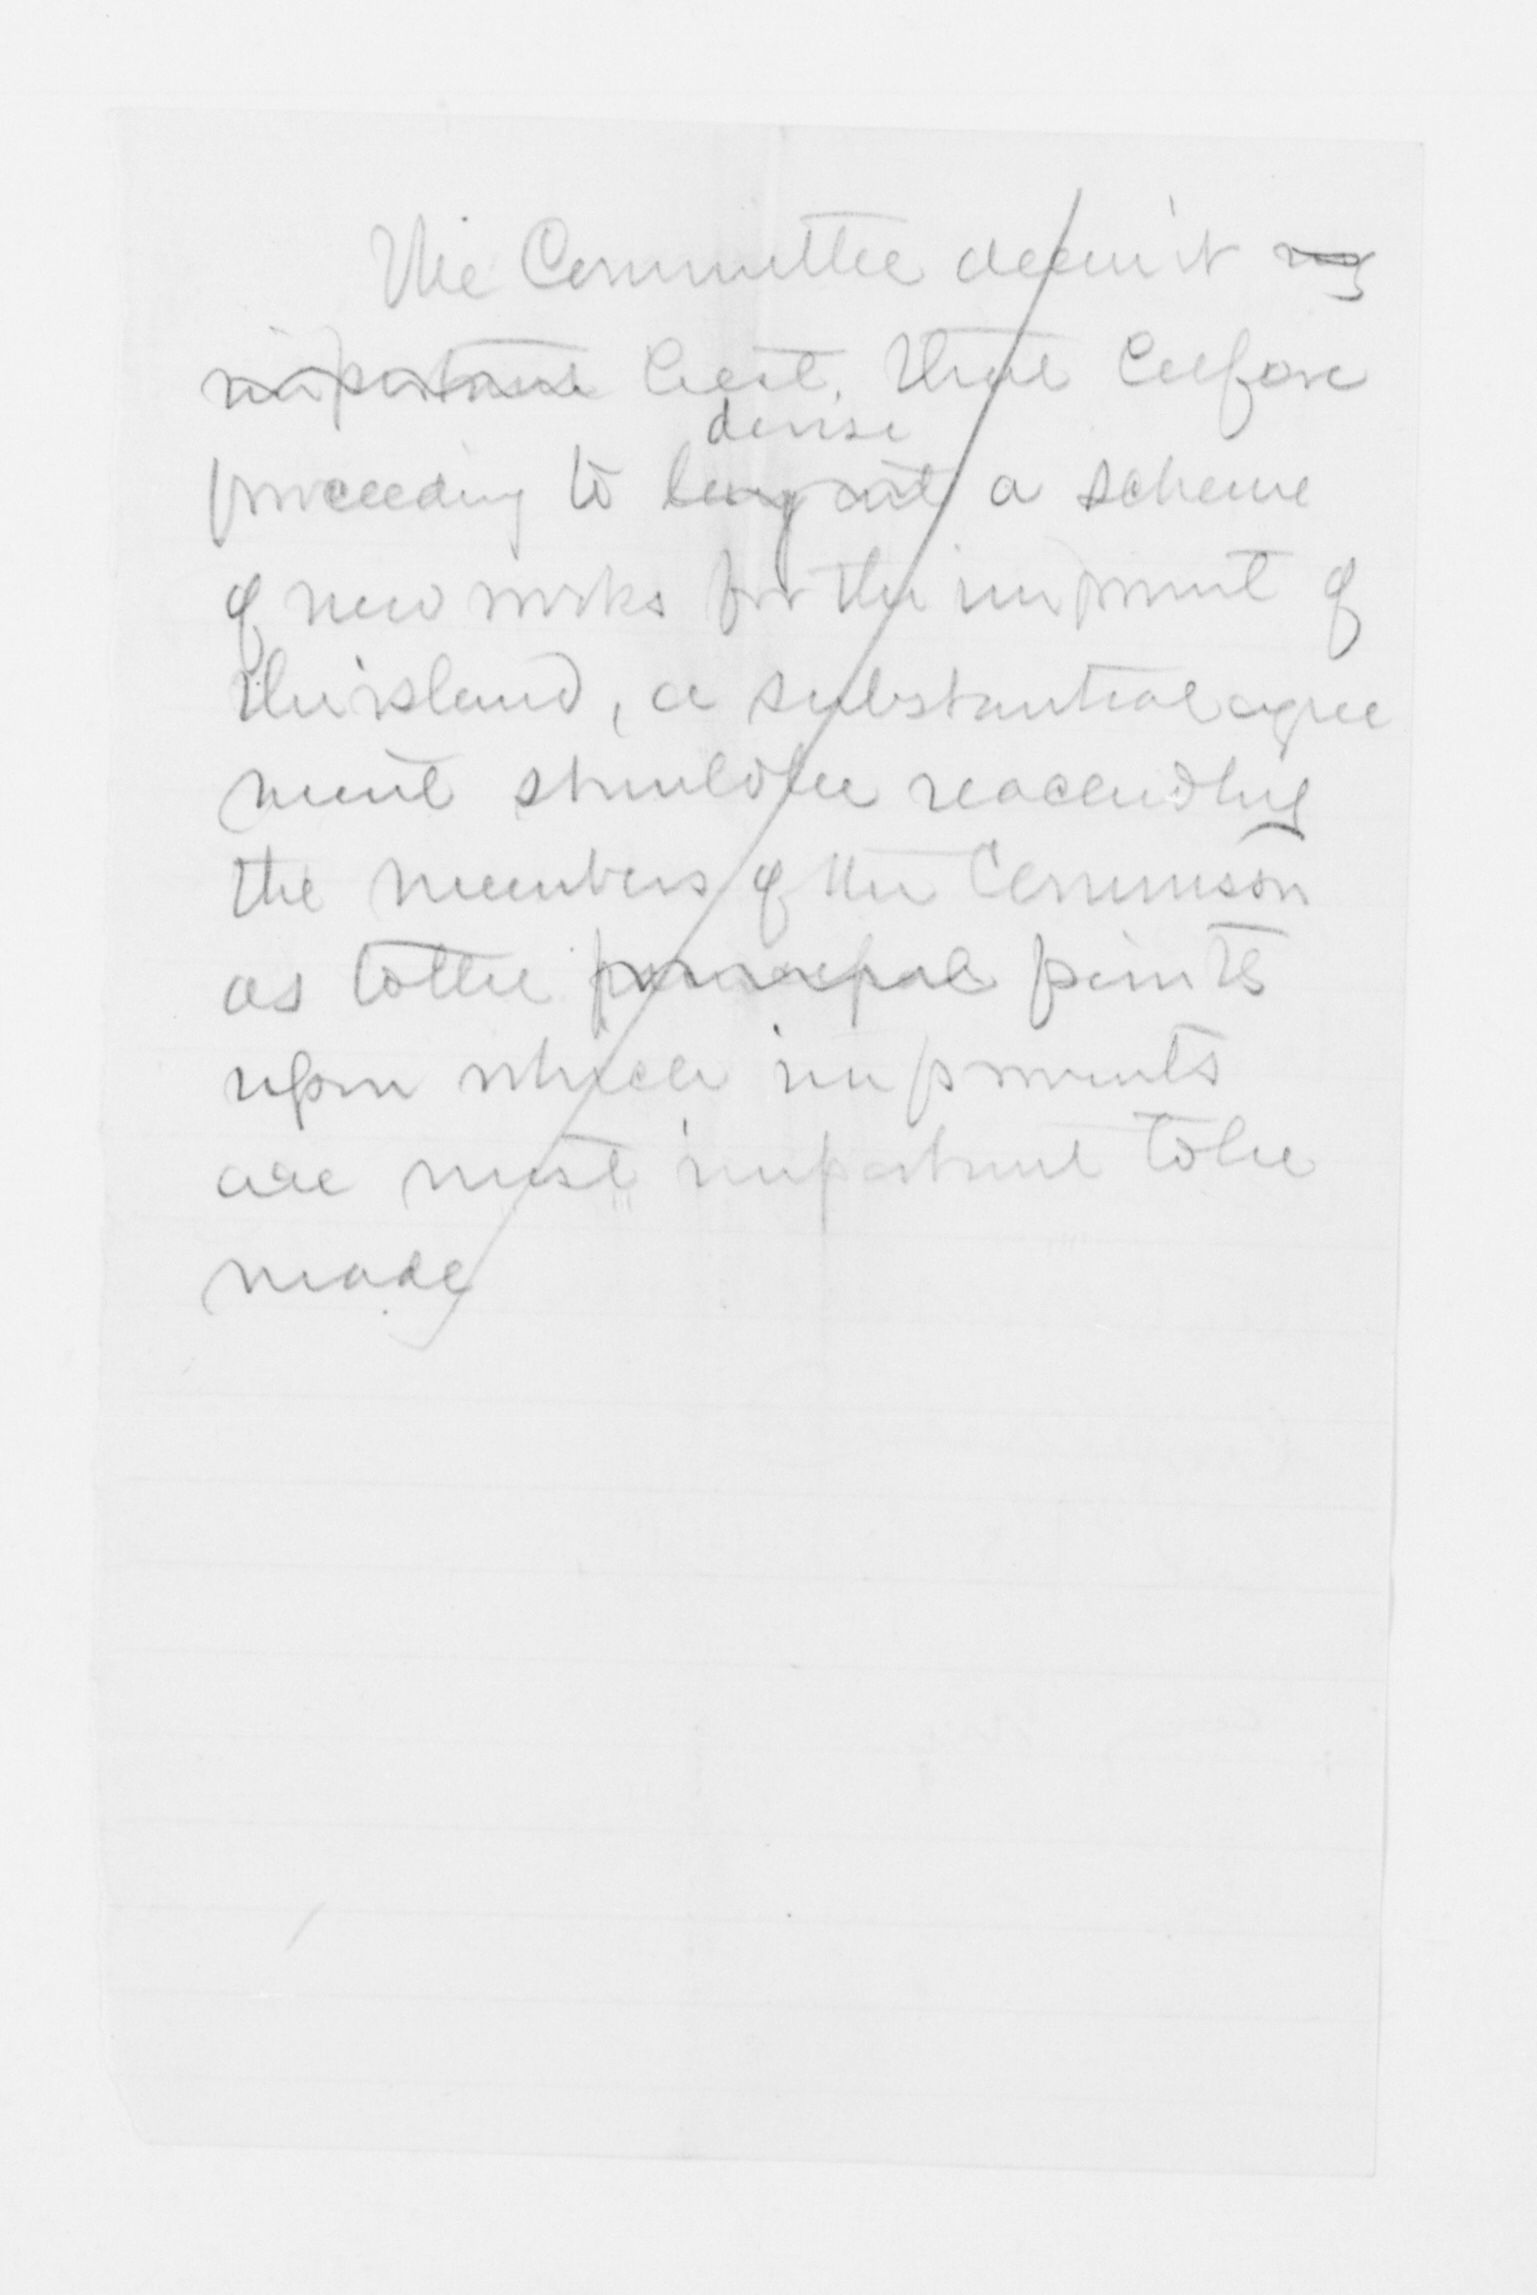 The Committee deem it
important best, that before
devise
proceeding to lay out a scheme
of new works for the improment of
the island, a substantial agree
ment should be reached by
the members of the Commison
as to the principal points
upon which improments
are most important to be
made